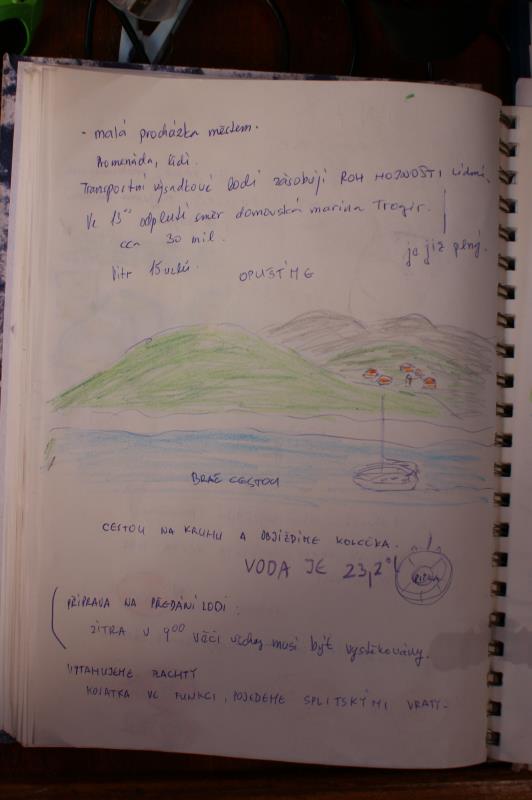 - malá procházka městem.
Promenáda, lidi.
Transportní výsadkové lodi zásobují ROH HOJNOSTI lidmi.
Ve 13⁰⁰ odplutí směr domovská marina Trogir.
cca 30 mil.
je již plný.
Vítr 15 uzlů.
OPUSTÍME
BRAČ CESTOU
CESTOU NA KRUHU A OBJÍŽDÍME KOLEČKA.
VODA JE 23,2°
PŘÍPRAVA NA PŘEDÁNÍ LODI:
ZÍTRA V 9⁰⁰ musí být vystěhovány.
VYTAHUJEME PLACHTY
KOSATKA VE FUNKCI, POJEDEME SPLITSKÝMI VRATY.